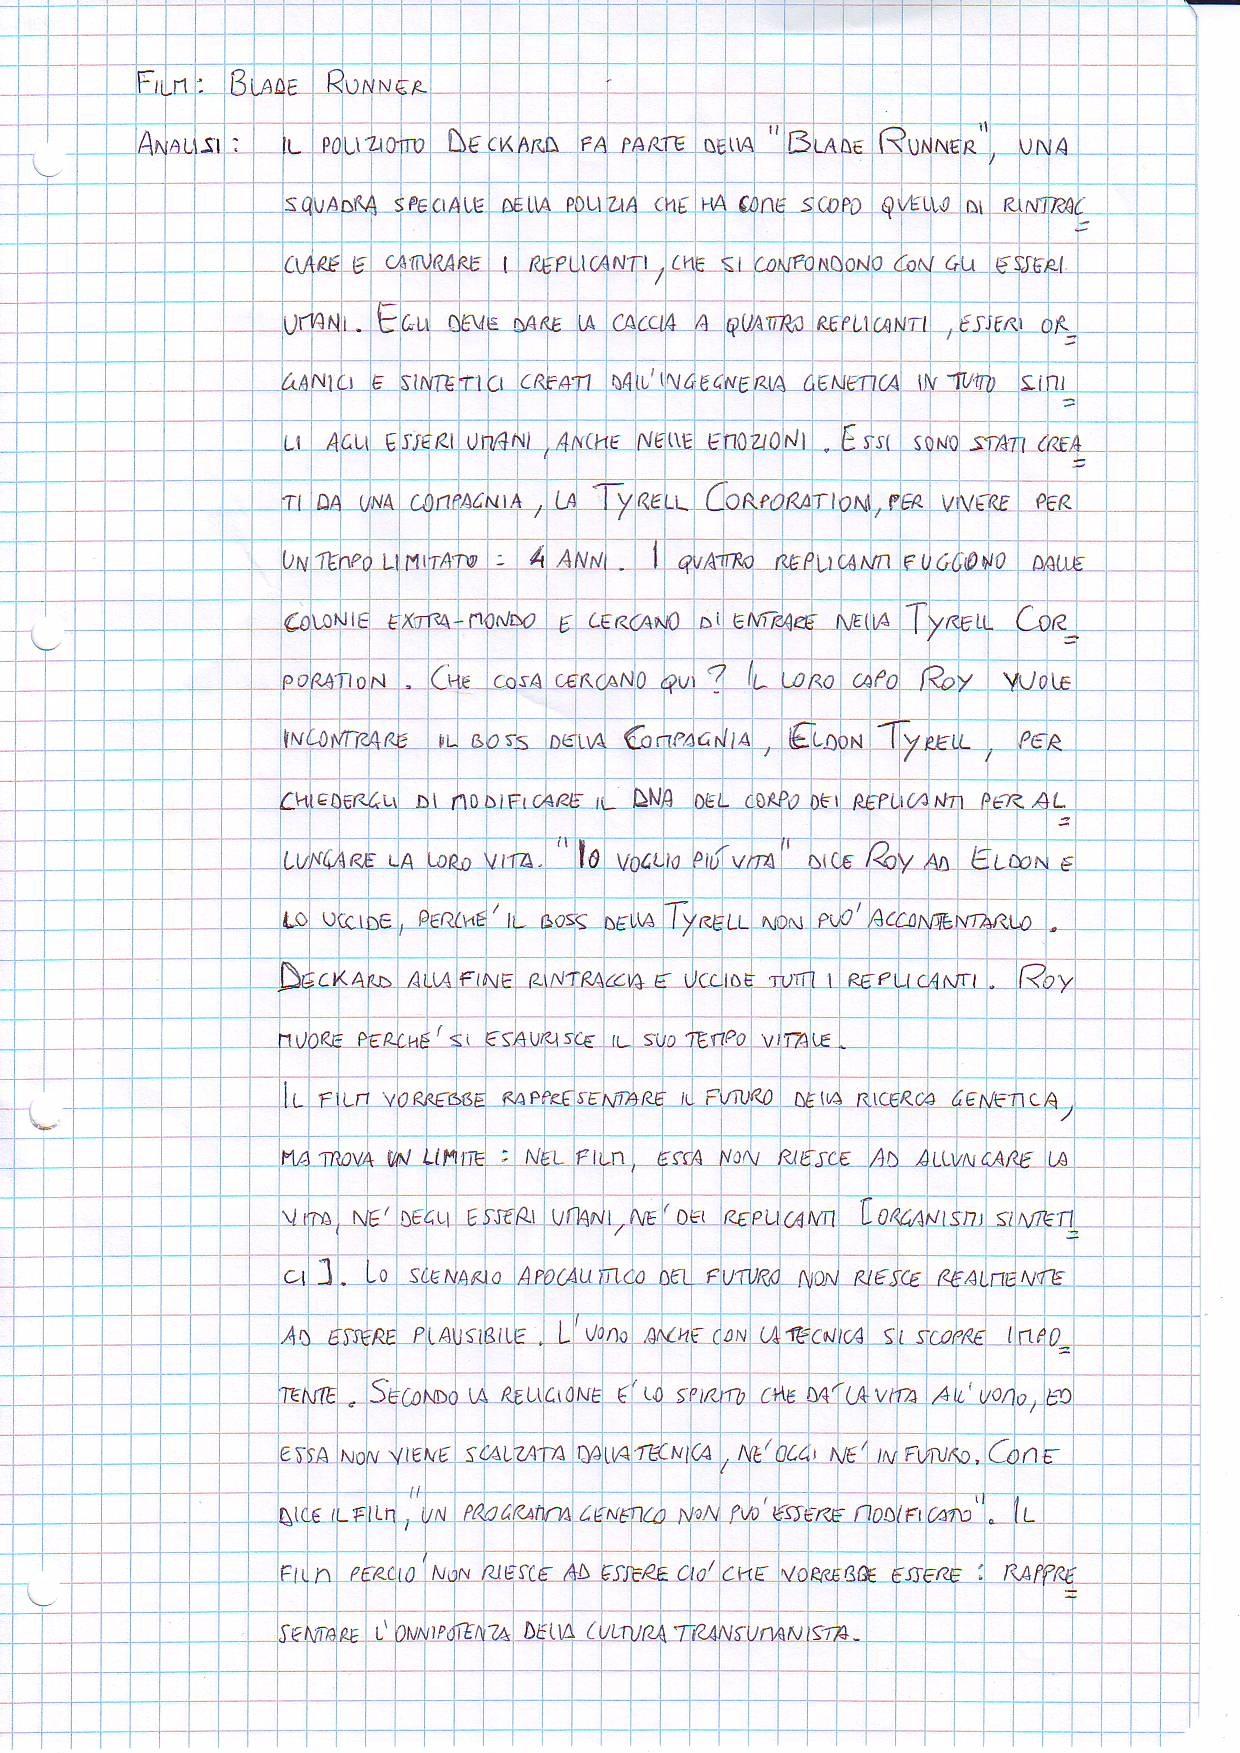 FILM: BLADE RUNNER
ANALISI: IL POLIZIOTTO DECKARD FA PARTE DELLA "BLADE RUNNER", UNA
SQUADRA SPECIALE DELLA POLIZIA CHE HA COME SCOPO QUELLO DI RINTRAC=
CIARE E CATTURARE I REPLICANTI, CHE SI CONFONDONO CON GLI ESSERI
UMANI. EGLI DEVE DARE LA CACCIA A QUATTRO REPLICANTI, ESSERI OR=
GANICI E SINTETICI CREATI DALL'INGEGNERIA GENETICA IN TUTTO SIMI=
LI AGLI ESSERI UMANI, ANCHE NELLE EMOZIONI. ESSI SONO STATI CREA=
TI DA UNA COMPAGNIA, LA TYRELL CORPORATION, PER VIVERE PER
UN TEMPO LIMITATO: 4 ANNI. I QUATTRO REPLICANTI FUGGONO DALLE
COLONIE EXTRA-MONDO E CERCANO DI ENTRARE NELLA TYRELL COR=
PORATION. CHE COSA CERCANO QUI? IL LORO CAPO ROY VUOLE
INCONTRARE IL BOSS DELLA COMPAGNIA, ELDON TYRELL, PER
CHIEDERGLI DI MODIFICARE IL DNA DEL CORPO DEI REPLICANTI PER AL=
LUNGARE LA LORO VITA. "IO VOGLIO PIÚ VITA" DICE ROY AD ELDON E
LO UCCIDE, PERCHE' IL BOSS DELLA TYRELL NON PUO' ACCONTENTARLO.
DECKARD ALLA FINE RINTRACCIA E UCCIDE TUTTI I REPLICANTI. ROY
MUORE PERCHE' SI ESAURISCE IL SUO TEMPO VITALE.
IL FILM VORREBBE RAPPRESENTARE IL FUTURO DELLA RICERCA GENETICA,
MA TROVA UN LIMITE: NEL FILM, ESSA NON RIESCE AD ALLUNGARE LA
VITA, NE' DEGLI ESSERI UMANI, NE' DEI REPLICANTI [ORGANISMI SINTETI=
CI]. LO SCENARIO APOCALITTICO DEL FUTURO NON RIESCE REALMENTE
AD ESSERE PLAUSIBILE. L'UOMO ANCHE CON LA TECNICA SI SCOPRE IMPO=
TENTE. SECONDO LA RELIGIONE E' LO SPIRITO CHE DA' LA VITA ALL'UOMO, ED
ESSA NON VIENE SCALZATA DALLA TECNICA, NE' OGGI NE' IN FUTURO. COME
DICE IL FILM, "UN PROGRAMMA GENETICO NON PUO' ESSERE MODIFICATO". IL
FILM PERCIO' NON RIESCE AD ESSERE CIO' CHE VORREBBE ESSERE: RAPPRE=
SENTARE L'ONNIPOTENZA DELLA CULTURA TRANSUMANISTA.